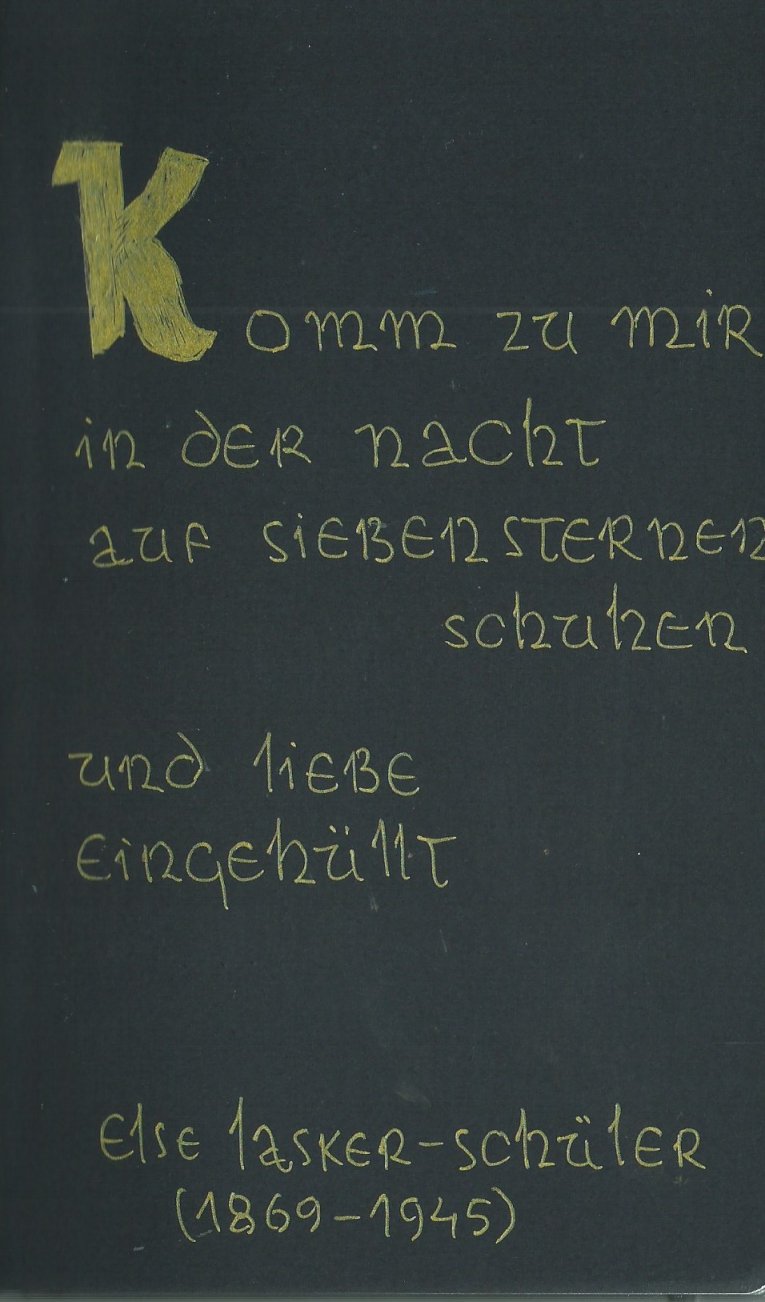 Komm zu mir
in der nacht
auf siebensternen
schuhen
und liebe
eingehüllt
else lasker-schüler
(1869-1945)